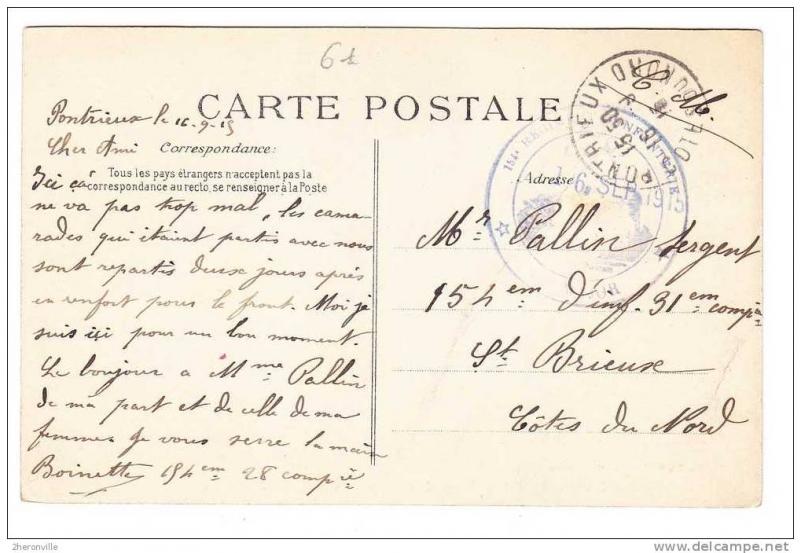 6f
CARTE POSTALE
Pontrieux le 16-9-15
Cher Ami
Correspondance:
Tous les pays étrangers n'acceptent pas la
correspondance au recto, se renseigner à la Poste
Ici ça
ne va pas trop mal, les cama-
rades qui étaient partis avec nous
sont repartis deux jours après
en renfort pour le front. Moi je
suis ici pour un bon moment.
Le bonjour a Mme Pallin
de ma part et de celle de ma
femme je vous serre la main
Boinette 154em 28 compie
F. M.
PONTRIEUX
COTES DU NORD
15 50
16 9 15
INFANTERIE
16 SEP 1915
Adresse
Mr Pallin Sergent
154em d'inf. 31em compie
St Brieux
Côtes du Nord
2heronville
www.delcampe.net